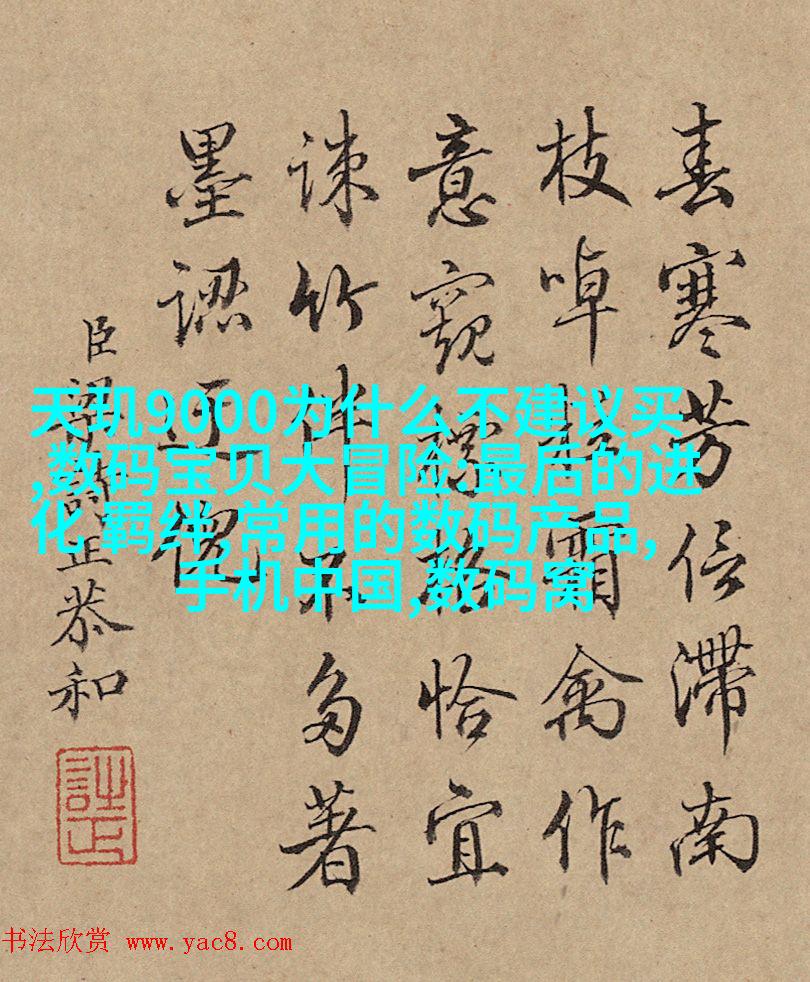 春寒芳信滯南
枝啅霜禽作
意窺恰宜
竹伴不多著
墨
臣梁詩正恭和
天玑9000为什么不建议买
,数码宝贝大冒险:最后的进
化 羁绊,常用的数码产品,
手机中国,数码窝
书法欣赏 www.yac8.com